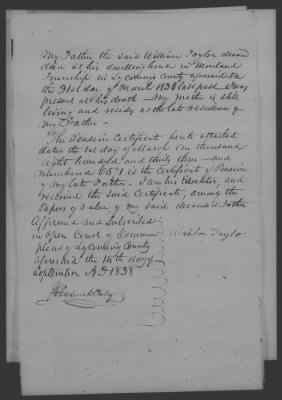 My Father the said William Taylor deceased
died at his dwelling house in Moreland
Township in Lycoming County aforesaid on
the 31st day of March 1838 last past I was
present at his death — My Mother is still
living and resides at the late residence of
my Father —
The Pension Certificate hereto attached
dated the 1st day of March one thousand
eight hundred and thirty three — and
numbered is the Certificate of Pension
of my late Father. I am his Executor, and
received the said Certificate, among the
papers of value of my said deceased Father
Affirmed and Subscribed
in Open Court of Common Taylor
pleas of Lycoming County
aforesaid the 14th day of
September A.D. 1838